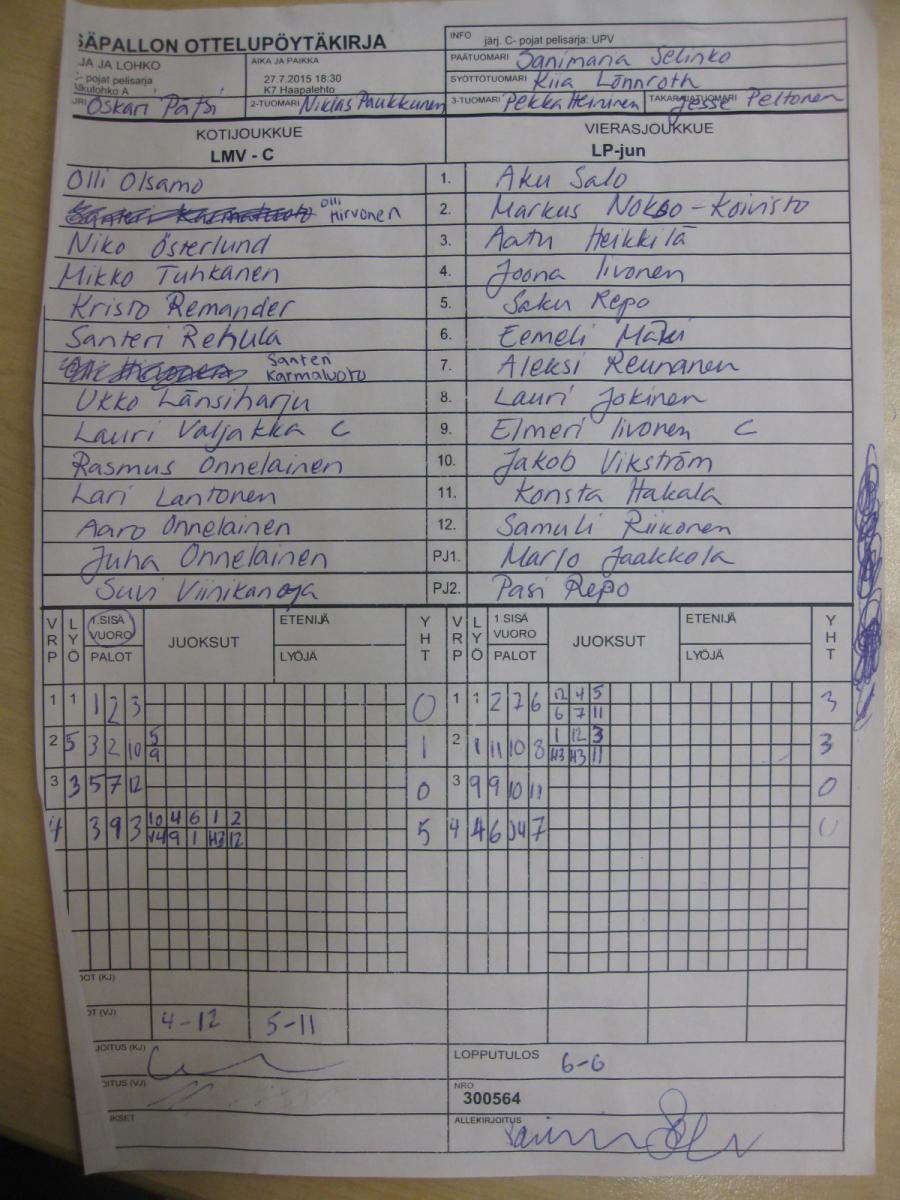 SÄPALLON OTTELUPÖYTÄKIRJA
INFO järj. C- pojat pelisarja: UPV
PÄÄTUOMARI Sanimaria Selinko
JA JA LOHKO
C- pojat pelisarja
Alkulohko A
AIKA JA PAIKKA
27.7.2015 18:30
K7 Haapalehto
SYÖTTÖTUOMARI Kiia Lönnroth
URI Oskari Pätsi 2-TUOMARI Niklas Paukkunen 3-TUOMARI Pekka Heininen TAKARAJATUOMARI Jesse Peltonen
KOTIJOUKKUE VIERASJOUKKUE
LMV - C LP-jun
Olli Olsamo 1. Aku Salo
Olli Hirvonen 2. Markus Nokso-Koivisto
Niko Österlund 3. Aatu Heikkilä
Mikko Tuhkanen 4. Joona Iivonen
Kristo Remander 5. Saku Repo
Santeri Rehula 6. Eemeli Mäki
Santeri Karmaluoto 7. Aleksi Reunanen
Ukko Länsiharju 8. Lauri Jokinen
Lauri Valjakka C 9. Elmeri Iivonen C
Rasmus Onnelainen 10. Jakob Vikström
Lari Lantonen 11. Konsta Hakala
Aaro Onnelainen 12. Samuli Riikonen
Juha Onnelainen PJ1. Marjo Jaakkola
Suvi Viinikanoja PJ2. Pasi Repo
VRP LYÖ 1.SISÄ VUORO PALOT JUOKSUT ETENIJÄ LYÖJÄ YHT VRP LYÖ 1.SISÄ VUORO PALOT JUOKSUT ETENIJÄ LYÖJÄ YHT
1 1 1 2 3 0 1 1 2 7 6 12 4 5 3
6 7 11
2 5 3 2 10 5 1 2 1 11 10 8 1 12 3 3
9 H3 H3 11
3 3 5 7 12 0 3 9 9 10 11 0
4 3 9 3 10 4 6 1 2 5 4 4 6 7 0
9 1 H3 12
OT (KJ)
OT (VJ) 4-12 5-11
JOITUS (KJ) LOPPUTULOS 6-6
OITUS (VJ) NRO
300564
IKSET ALLEKIRJOITUS